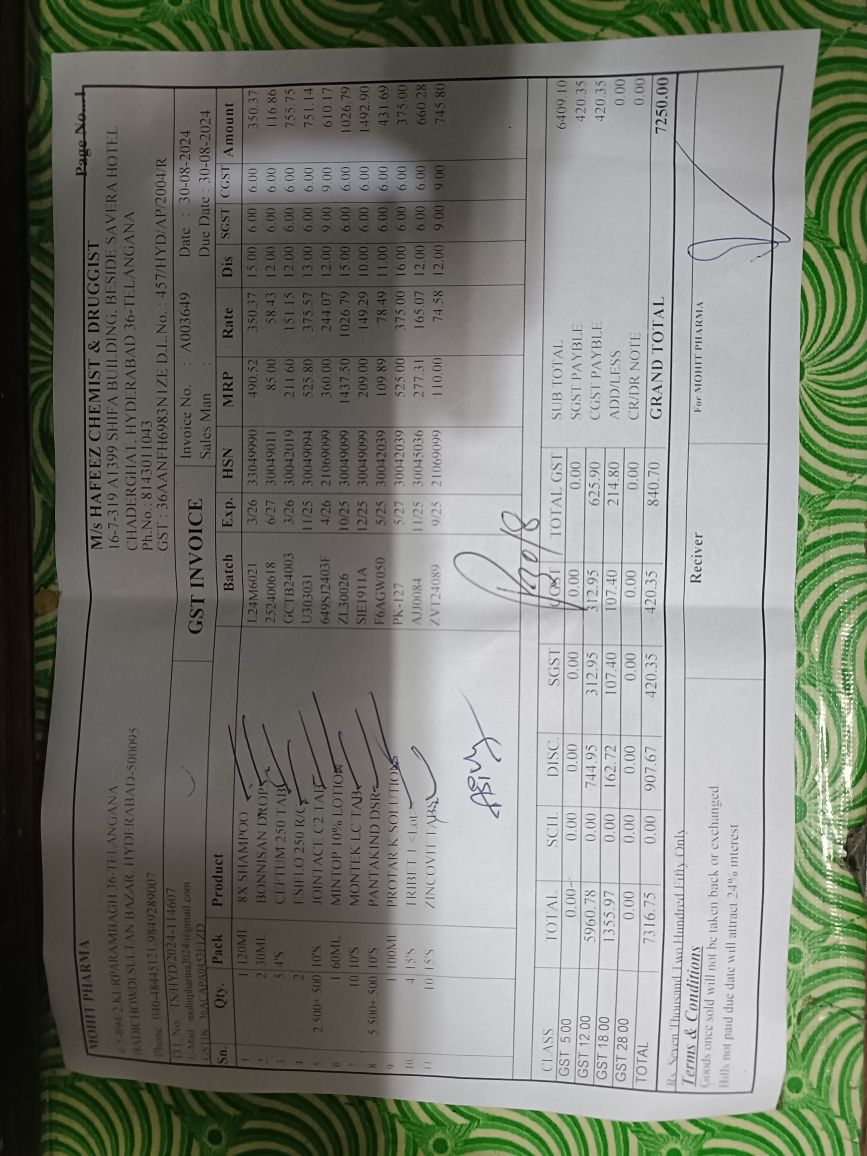 Page No...1
MOHIT PHARMA
4-5-894/2,KURPARAMBAGH 36-TELANGANA
BADICHOWDI,SULTAN BAZAR, HYDERABAD-500095
Phone : 040-48445121,9849289007
D.L.No. : TSHYD2024-114607
E-Mail : mohitpharma2024@gmail.com
M/s HAFEEZ CHEMIST & DRUGGIST
16-7-319 A1399 SHIFA BUILDING, BESIDE SAVERA HOTEL
CHADERGHAT, HYDERABAD 36-TELANGANA
Ph.No.: 8143011043
GST : 36AANFH6983N1ZE D.L.No. : 457/HYD/AP/2004/R
GST INVOICE
Invoice No. : A003649 Date : 30-08-2024
Sales Man : Due Date : 30-08-2024
Sn. Qty. Pack Product Batch Exp. HSN MRP Rate Dis SGST CGST Amount
1 1 120ML 8X SHAMPOO L24M6021 3/26 33049990 490.52 350.37 15.00 6.00 6.00 350.37
2 2 30ML BONNISAN DROPS 252400618 6/27 30049011 85.00 58.43 12.00 6.00 6.00 116.86
3 5 4'S CEFTUM 250 TAB GCTB24003 3/26 30042019 211.60 151.15 12.00 6.00 6.00 755.75
4 2 ESIFLO 250 R/C U303031 11/25 30049094 525.80 375.57 13.00 6.00 6.00 751.14
5 2.500+.500 10'S JOINTACE C2 TAB 649SJ2403F 4/26 21069099 360.00 244.07 12.00 9.00 9.00 610.17
6 1 60ML MINTOP 10% LOTION ZL30026 10/25 30049099 1437.50 1026.79 15.00 6.00 6.00 1026.79
7 10 10'S MONTEK LC TAB SIE1911A 12/25 30049099 209.00 149.29 10.00 6.00 6.00 1492.90
8 5.500+.500 10'S PANTAKIND DSR F6AGW050 5/25 30042039 109.89 78.49 11.00 6.00 6.00 431.69
9 1 100ML PROTAR K SOLUTION PK-127 5/27 30042039 525.00 375.00 16.00 6.00 6.00 375.00
10 4 15'S TRIBET 1 AJJ0084 11/25 30045036 277.31 165.07 12.00 6.00 6.00 660.28
11 10 15'S ZINCOVIT TABS ZVT24089 9/25 21069099 110.00 74.58 12.00 9.00 9.00 745.80
CLASS TOTAL SCH. DISC. SGST CGST TOTAL GST
GST 5.00 0.00 0.00 0.00 0.00 0.00 0.00
GST 12.00 5960.78 0.00 744.95 312.95 312.95 625.90
GST 18.00 1355.97 0.00 162.72 107.40 107.40 214.80
GST 28.00 0.00 0.00 0.00 0.00 0.00 0.00
TOTAL 7316.75 0.00 907.67 420.35 420.35 840.70
SUB TOTAL 6409.10
SGST PAYBLE 420.35
CGST PAYBLE 420.35
ADD/LESS 0.00
CR/DR NOTE 0.00
GRAND TOTAL 7250.00
Rs. Seven Thousand Two Hundred Fifty Only
Terms & Conditions
Goods once sold will not be taken back or exchanged
Bills not paid due date will attract 24% interest
Reciver
For MOHIT PHARMA